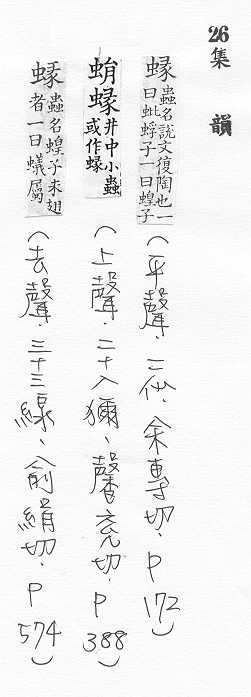 26 集 韻
蝝 蟲名說文復陶也一曰蚍蜉子一曰蝗子 (平聲．二仙、余專切．P172)
蜎蝝 井中小蟲或作蝝 (上聲．二十八獮、馨兗切．P.388)
蝝 蟲名蝗子未翅者一曰蟻屬 (去聲．三十三線、俞絹切．P574)